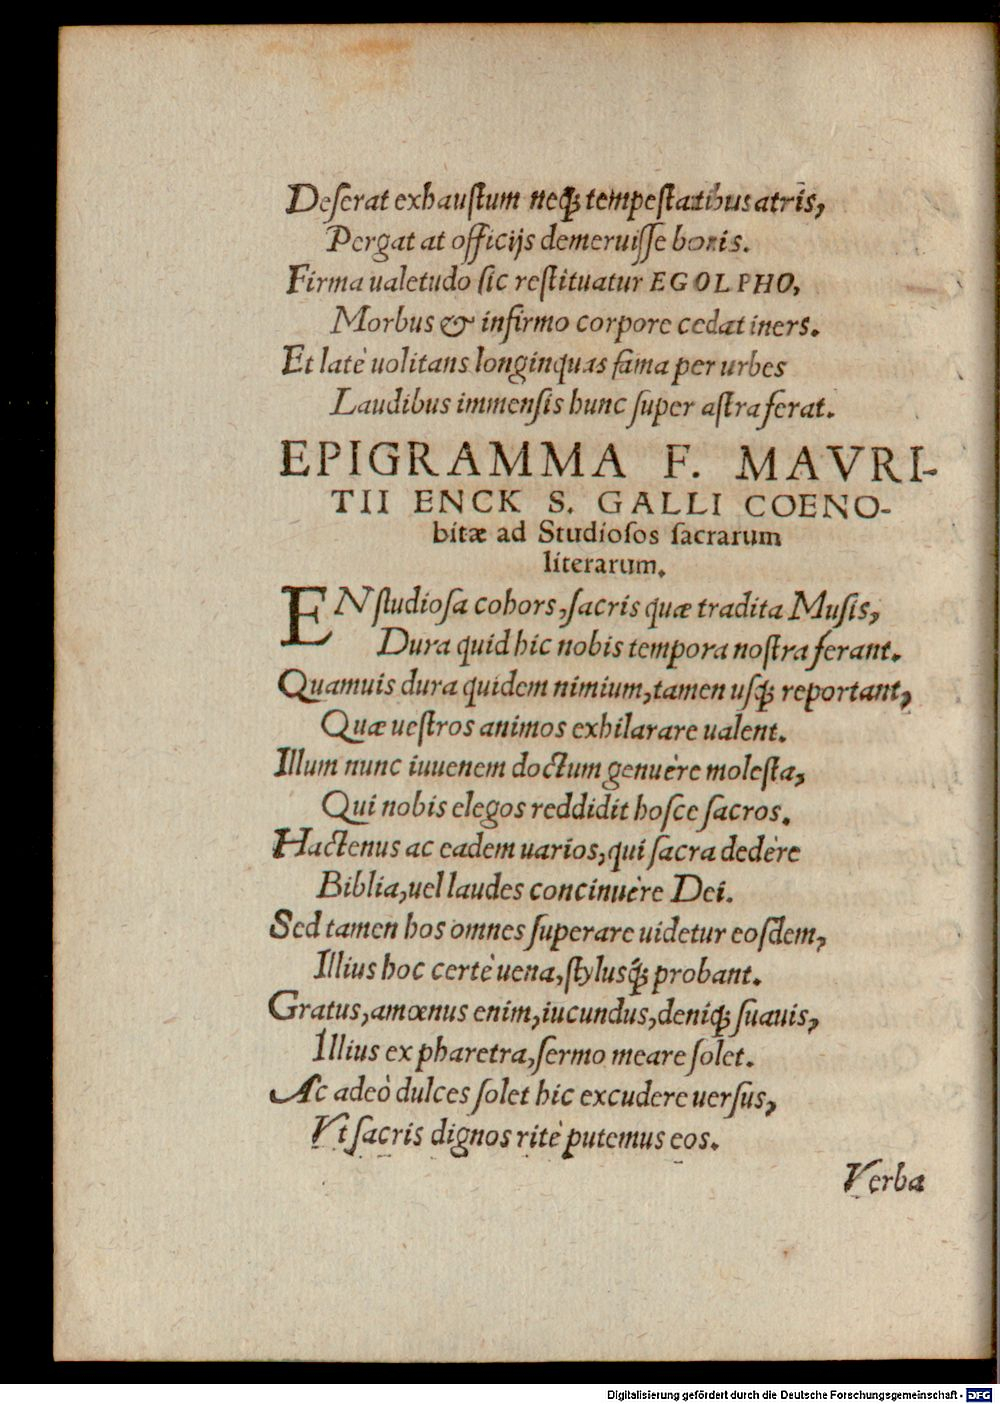 Deſerat exhauſtum neqꝫ tempeſtatibus atris,
Pergat at officijs demeruiſſe bonis.
Firma ualetudo ſic reſtituatur EGOLPHO,
Morbus & infirmo corpore cedat iners.
Et latè uolitans longinquas fama per urbes
Laudibus immenſis hunc ſuper aſtra ferat.
EPIGRAMMA F. MAVRI-
TII ENCK S. GALLI COENO-
bitæ ad Studioſos ſacrarum
literarum.
EN ſtudioſa cohors, ſacris quæ tradita Muſis,
Dura quid hic nobis tempora noſtra ferant.
Quamuis dura quidem nimium, tamen uſqꝫ reportant,
Quæ ueſtros animos exhilarare ualent.
Illum nunc iuuenem doctum genuêre moleſta,
Qui nobis elegos reddidit hoſce ſacros.
Hactenus ac eadem uarios, qui ſacra dedêre
Biblia, uel laudes concinuêre Dei.
Sed tamen hos omnes ſuperare uidetur eoſdem,
Illius hoc certè uena, ſtylusqꝫ́ probant.
Gratus, amœnus enim, iucundus, deniqꝫ ſuauis,
Illius ex pharetra, ſermo meare ſolet.
Ac adeò dulces ſolet hic excudere uerſus,
Vt ſacris dignos ritè putemus eos.
Verba
Digitalisierung gefördert durch die Deutsche Forschungsgemeinschaft - DFG